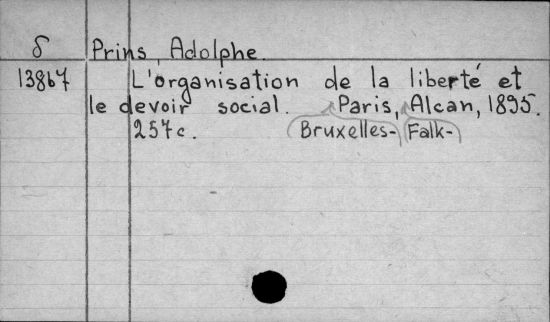 δ Prins, Adolphe.
13867 L'organisation de la liberté et
le devoir social. Paris, Alcan, 1895.
257 c. Bruxelles- Falk-